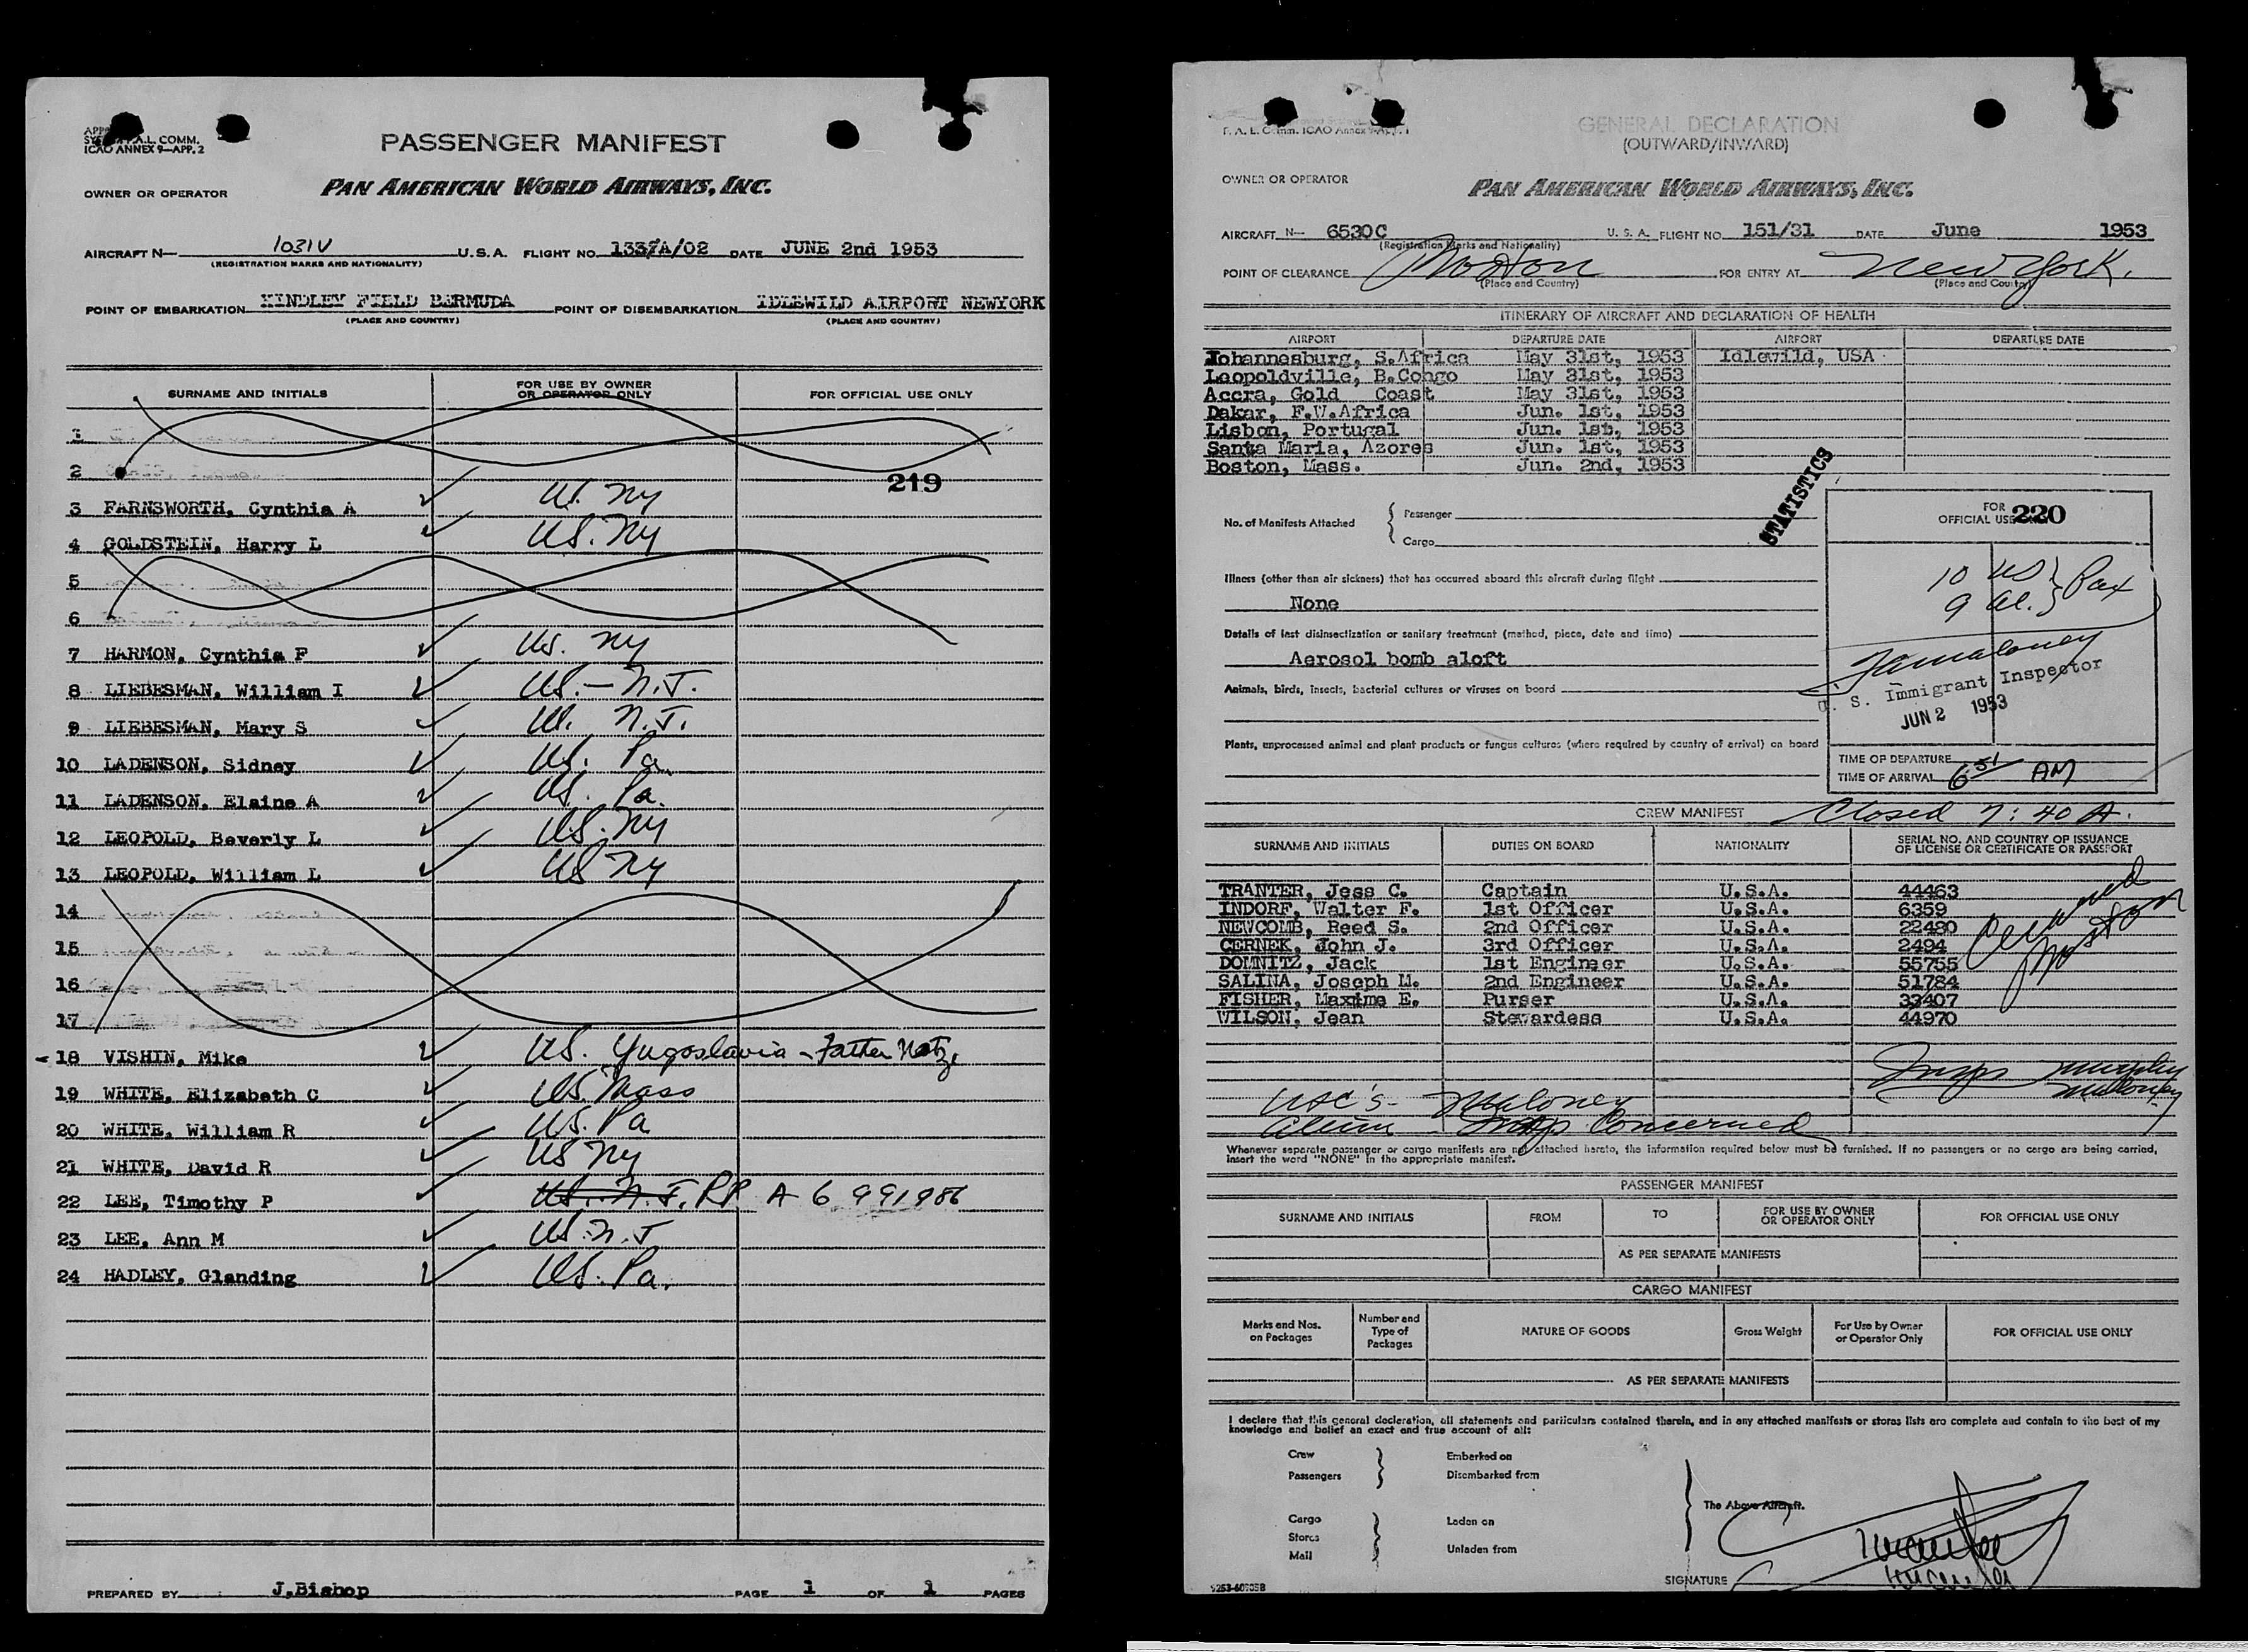 APP
SY F.A.L. COMM.
ICAO ANNEX 9—APP. 2
PASSENGER MANIFEST
OWNER OR OPERATOR PAN AMERICAN WORLD AIRWAYS, INC.
AIRCRAFT N— 1031V U.S.A. FLIGHT NO. 1337A/02 DATE JUNE 2nd 1953
(REGISTRATION MARKS AND NATIONALITY)
POINT OF EMBARKATION KINDLEY FIELD BERMUDA POINT OF DISEMBARKATION IDLEWILD AIRPORT NEWYORK
(PLACE AND COUNTRY) (PLACE AND COUNTRY)
SURNAME AND INITIALS FOR USE BY OWNER OR OPERATOR ONLY FOR OFFICIAL USE ONLY
1
2 219
3 FARNSWORTH, Cynthia A ✓ US. NY
4 GOLDSTEIN, Harry L ✓ US. NY
5
6
7 HARMON, Cynthia F ✓ US. NY
8 LIEBESMAN, William I ✓ US. — N.J.
9 LIEBESMAN, Mary S ✓ US. N.J.
10 LADENSON, Sidney ✓ US. Pa.
11 LADENSON, Elaine A ✓ US. Pa.
12 LEOPOLD, Beverly L ✓ US. NY
13 LEOPOLD, William L ✓ US NY
14
15
16
17
18 VISHIN, Mike ✓ US. Yugoslavia - Father Natz.
19 WHITE, Elizabeth C ✓ US. Mass
20 WHITE, William R ✓ US. Pa
21 WHITE, David R ✓ US NY
22 LEE, Timothy P ✓ US. N.J. RP A 6 991986
23 LEE, Ann M ✓ US. N.J
24 HADLEY, Glanding ✓ US. Pa.
PREPARED BY J.Bishop PAGE 1 OF 1 PAGES
F. A. L. Comm. ICAO Annex 9-App. 1
GENERAL DECLARATION
(OUTWARD/INWARD)
OWNER OR OPERATOR PAN AMERICAN WORLD AIRWAYS, INC.
AIRCRAFT N— 6530C U. S. A. FLIGHT NO. 151/31 DATE June 1953
(Registration Marks and Nationality)
POINT OF CLEARANCE Boston FOR ENTRY AT New York.
(Place and Country) (Place and Country)
ITINERARY OF AIRCRAFT AND DECLARATION OF HEALTH
AIRPORT DEPARTURE DATE AIRPORT DEPARTURE DATE
Johannesburg, S.Africa May 31st, 1953 Idlewild, USA
Leopoldville, B.Congo May 31st, 1953
Accra, Gold Coast May 31st, 1953
Dakar, F.W.Africa Jun. 1st, 1953
Lisbon, Portugal Jun. 1st, 1953
Santa Maria, Azores Jun. 1st, 1953
Boston, Mass. Jun. 2nd, 1953
STATISTICS
No. of Manifests Attached { Passenger
Cargo
FOR OFFICIAL USE 220
10 US } Pax
9 Al.
Illness (other than air sickness) that has occurred aboard this aircraft during flight
None
Details of last disinsectization or sanitary treatment (method, place, date and time)
Aerosol bomb aloft
Animals, birds, insects, bacterial cultures or viruses on board
U. S. Immigrant Inspector
JUN 2 1953
Plants, unprocessed animal and plant products or fungus cultures (where required by country of arrival) on board
TIME OF DEPARTURE
TIME OF ARRIVAL 6 51 AM
CREW MANIFEST Closed 7:40 A.
SURNAME AND INITIALS DUTIES ON BOARD NATIONALITY SERIAL NO. AND COUNTRY OF ISSUANCE OF LICENSE OR CERTIFICATE OR PASSPORT
TRANTER, Jess C. Captain U.S.A. 44463
INDORF, Walter F. 1st Officer U.S.A. 6359
NEWCOMB, Reed S. 2nd Officer U.S.A. 22480
CERNEK, John J. 3rd Officer U.S.A. 2494
DOMNITZ, Jack 1st Engineer U.S.A. 55755
SALINA, Joseph M. 2nd Engineer U.S.A. 51784
FISHER, Maxime E. Purser U.S.A. 33407
WILSON, Jean Stewardess U.S.A. 44970
Boston
Insps Murphy
Mulloney
USC's - Maloney
Aliens - Insp. Concerned
Whenever separate passenger or cargo manifests are not attached hereto, the information required below must be furnished. If no passengers or no cargo are being carried,
insert the word "NONE" in the appropriate manifest.
PASSENGER MANIFEST
SURNAME AND INITIALS FROM TO FOR USE BY OWNER OR OPERATOR ONLY FOR OFFICIAL USE ONLY
AS PER SEPARATE MANIFESTS
CARGO MANIFEST
Marks and Nos. on Packages Number and Type of Packages NATURE OF GOODS Gross Weight For Use by Owner or Operator Only FOR OFFICIAL USE ONLY
AS PER SEPARATE MANIFESTS
I declare that this general declaration, all statements and particulars contained therein, and in any attached manifests or stores lists are complete and contain to the best of my
knowledge and belief an exact and true account of all:
Crew Embarked on
Passengers Disembarked from
The Above Aircraft.
Cargo Laden on
Stores
Mail Unladen from
SIGNATURE